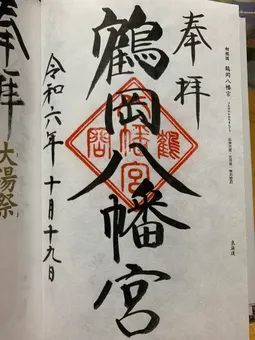 奉拝
鶴岡八幡宮
令和六年十月十九日
鶴岡八幡宮
奉拝
大湯祭
鶴岡八幡宮